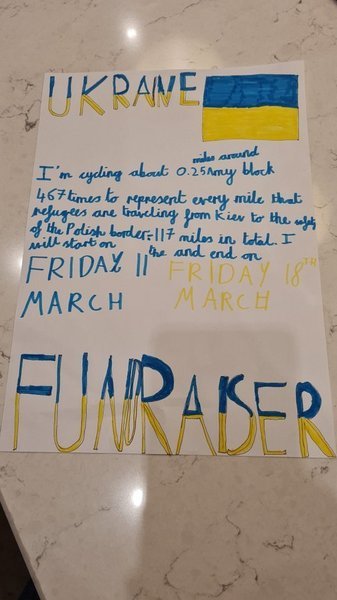 UKRANE
miles around
I'm cycling about 0.25 my block
467 times to represent every mile that
refugees are traveling from Kiev to the safety
of the Polish border=117 miles in total. I
will start on the and end on
FRIDAY 11 FRIDAY 18TH
MARCH MARCH
FUNDRAISER